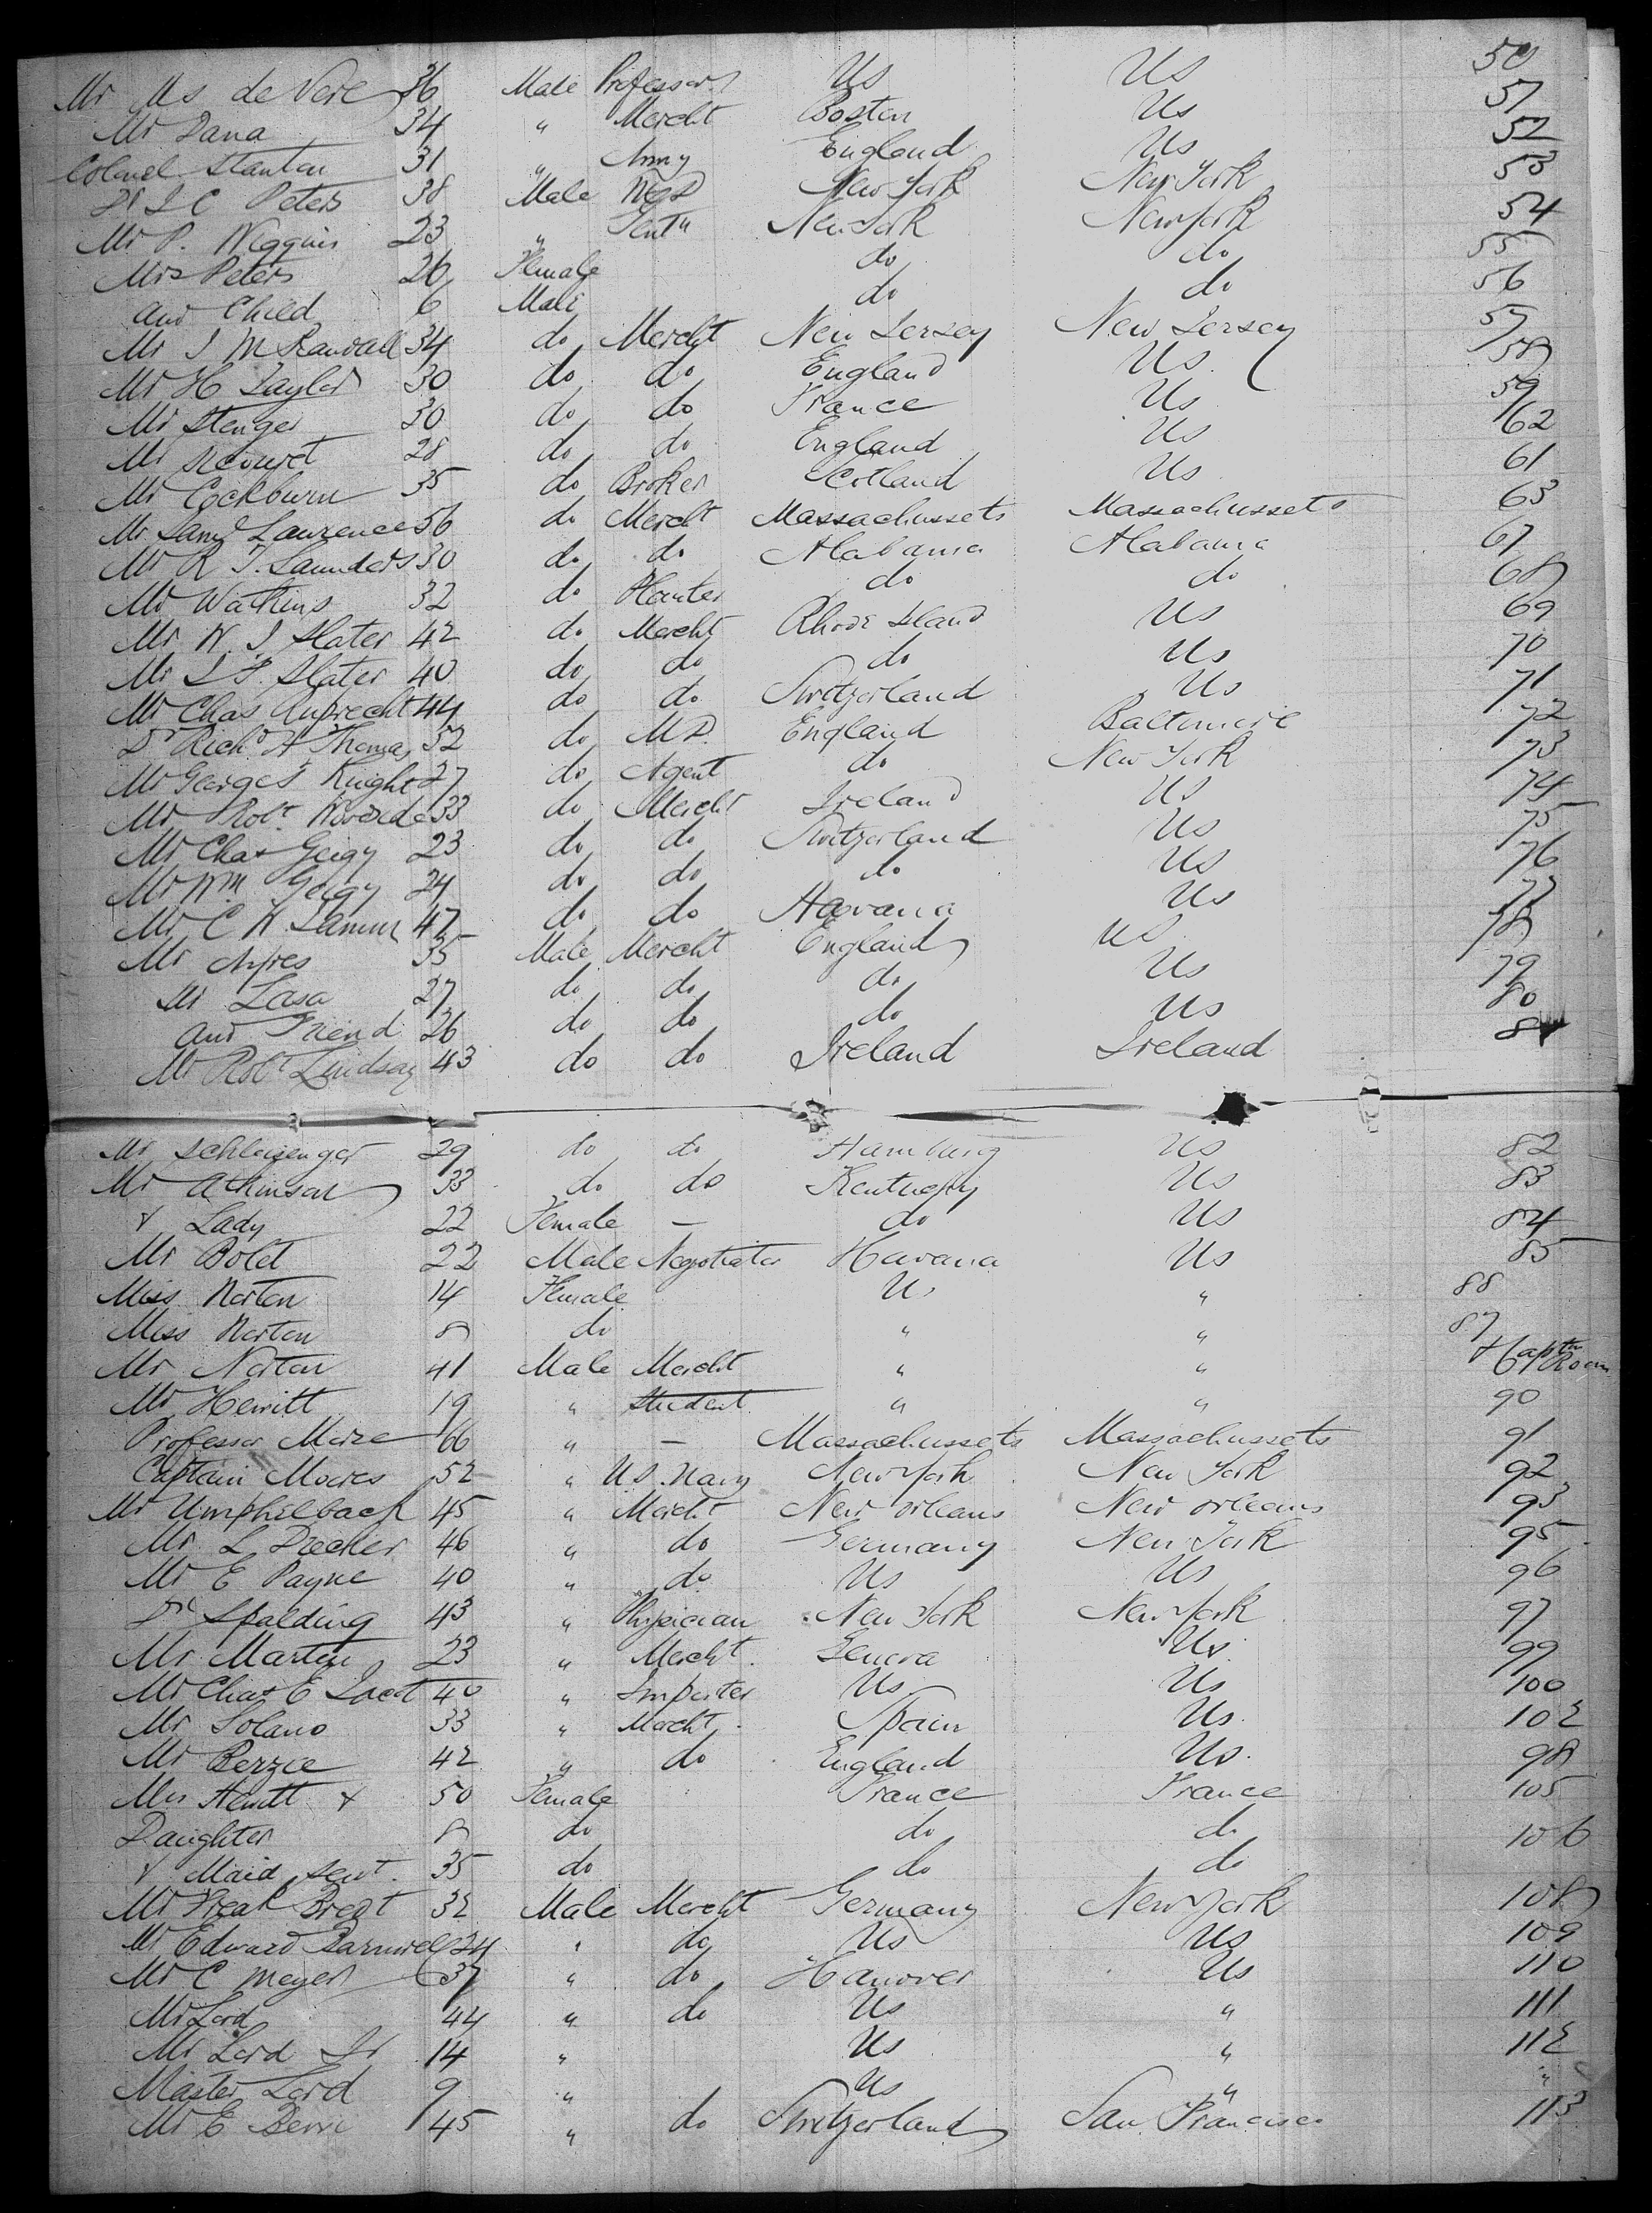 Mr Ms de Vere 36 Male Professor Us Us 50
Mr Dana 34 " Mercht Boston Us 51
Colonel Stanton 31 " Army England Us 52
Dr J C Peters 38 Male New York New York 53
Mr P. Wiggins 23 " Gentn New York New York 54
Mrs Peters 26 Female do do 55
and Child 6 Male do do 56
Mr J M Randall 34 do Mercht New Jersey New Jersey 57
Mr H Taylor 30 do do England Us 58
Mr Stenger 30 do do France Us 59
Mr 28 do do England Us 62
Mr Cockburn 35 do Broker Scotland Us 61
Mr Saml Lawrence 56 do Mercht Massachussets Massachussets 63
Mr R T. Saunders 30 do do Alabama Alabama 67
Mr Watkins 32 do Planter do do 68
Mr W. J Slater 42 do Mercht Rhode Island Us 69
Mr J F. Slater 40 do do do Us 70
Mr Chas Ruprecht 44 do do Switzerland Us 71
Dr Richd H Thomas 52 do MD. England Baltimore 72
Mr George S Knight 27 do Agent do New York 73
Mr Robt 33 do Mercht Ireland Us 74
Mr Chas Geigy 23 do do Switzerland Us 75
Mr Wm Geigy 24 do do do Us 76
Mr C W 47 do do Havana Us 77
Mr Ayres 35 Male Mercht England us 78
Mr Lasa 27 do do do Us 79
and Friend 26 do do do us 80
Mr Robt Lindsay 43 do do Ireland Ireland 81
Mr Schleizenger 29 do do Hamburg Us 82
Mr Atkinson 33 do do Kentucky Us 83
& Lady 22 Female — do Us 84
Mr Bold 22 Male Negotiator Havana Us 85
Miss Norton 14 Female Us " 88
Miss Norton 8 do " " 87
Mr Norton 41 Male Mercht " " Captn Room
Mr Hewitt 19 " Student " " 90
Professor Moize 66 " — Massachussets Massachussets 91
Captain Moores 52 " U S. Navy New York New York 92
Mr Umphelback 45 " Mercht New Orleans New Orleans 93
Mr L Drecker 46 " do Germany New York 95
Mr E Payne 40 " do Us Us 96
Dr Spalding 43 " Physician New York New York 97
Mr Martin 23 " Mercht. Geneva Us 99
Mr Chas E 40 " Importer Us Us 100
Mr Solano 33 " Mercht. Spain Us. 102
Mr Berzie 42 " do England Us. 98
Mrs Hewitt & 50 Female France France 105
Daughter 8 do do do 106
& Maid Servt. 35 do do do
Mr Fredk Bredt 32 Male Mercht Germany New York 108
Mr Edward Barnwell 24 " do Us Us 109
Mr C Meyer 37 " do Hanover Us 110
Mr Lord 44 " do Us " 111
Mr Lord Jr 14 " Us " 112
Master Lord 9 " Us " "
Mr E 45 " do Switzerland San Francisco 113